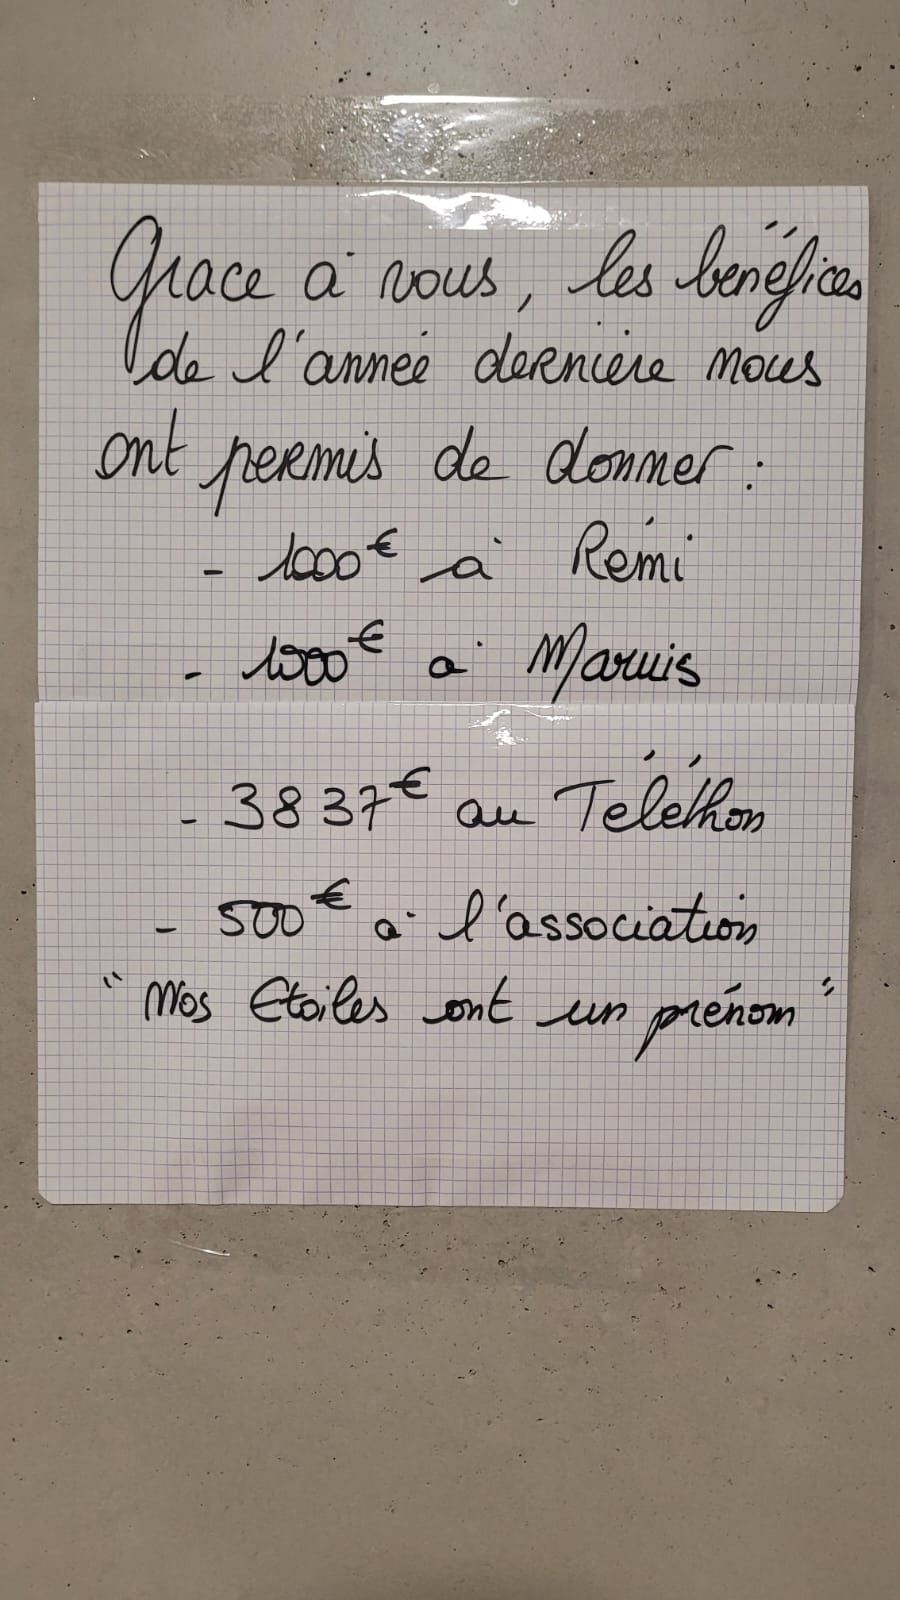 Grace à vous, les bénéfices
de l'année dernière nous
ont permis de donner :
- 1000€ à Rémi
- 1000€ à
- 3837€ au Téléthon
- 500€ à l'association
"Nos Etoiles ont un prénom"